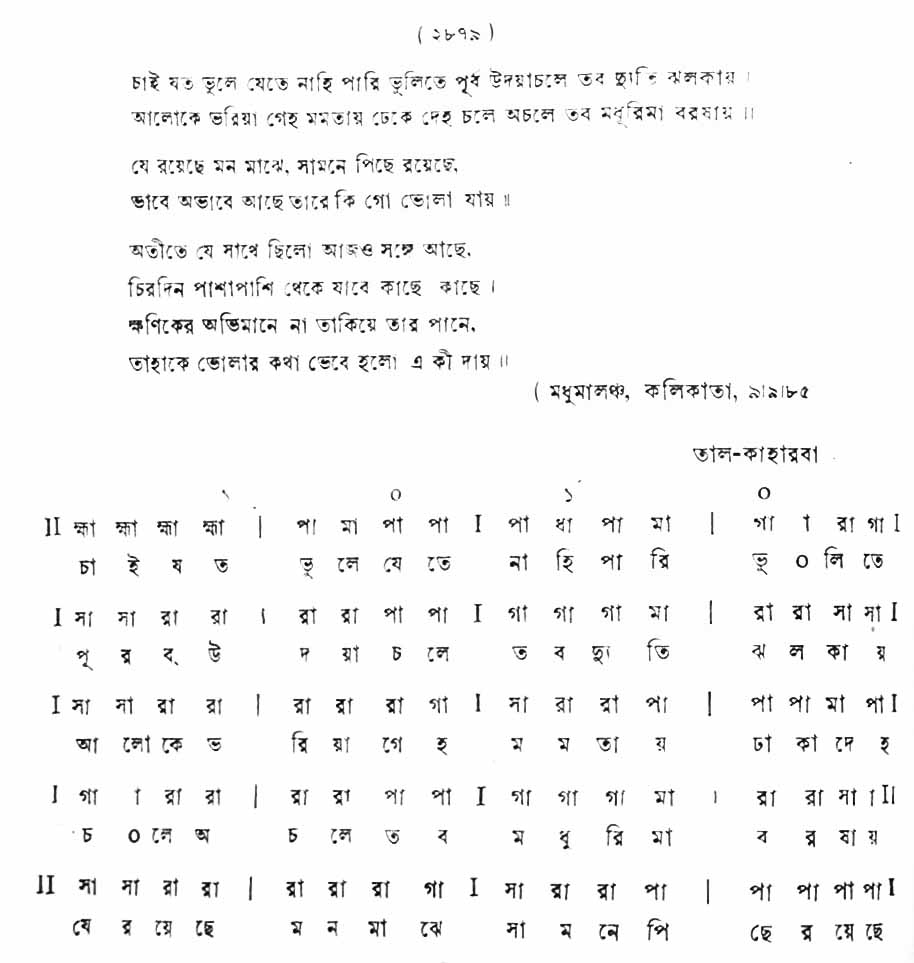 ( ২৮৭৯ )
চাই যত ভুলে যেতে নাহি পারি ভুলিতে পূর্ব উদয়াচলে তব দ্যুতি ঝলকায় ।
আলোকে ভরিয়া গেহ মমতায় ঢেকে দেহ চলে অচলে তব মধুরিমা বরষায় ॥
যে রয়েছে মন মাঝে, সামনে পিছে রয়েছে,
ভাবে অভাবে আছে তারে কি গো ভোলা যায় ॥
অতীতে যে সাথে ছিলো আজও সঙ্গে আছে,
চিরদিন পাশাপাশি থেকে যাবে কাছে কাছে ।
ক্ষণিকের অভিমানে না তাকিয়ে তার পানে,
তাহাকে ভোলার কথা ভেবে হলো এ কী দায় ॥
( মধুমালঞ্চ, কলিকাতা, ৯।৯।৮৫
তাল-কাহারবা
১ ০ ১ ০
II হ্মা হ্মা হ্মা হ্মা | পা মা পা পা I পা ধা পা মা | গা া রা গা I
চা ই য ত ভু লে যে তে না হি পা রি ভু ০ লি তে
I সা সা রা রা । রা রা পা পা I গা গা গা মা | রা রা সা সা I
পূ র ব্ উ দ য়া চ লে ত ব দ্যু তি ঝ ল কা য়
I সা সা রা রা | রা রা রা গা I সা রা রা পা | পা পা মা পা I
আ লো কে ভ রি য়া গে হ ম ম তা য় ঢা কা দে হ
I গা া রা রা | রা রা পা পা I গা গা গা মা । রা রা সা া II
চ ০ লে অ চ লে ত ব ম ধু রি মা ব র ষা য়
II সা সা রা রা | রা রা রা গা I সা রা রা পা | পা পা পা পা I
যে র য়ে ছে ম ন মা ঝে সা ম নে পি ছে র য়ে ছে